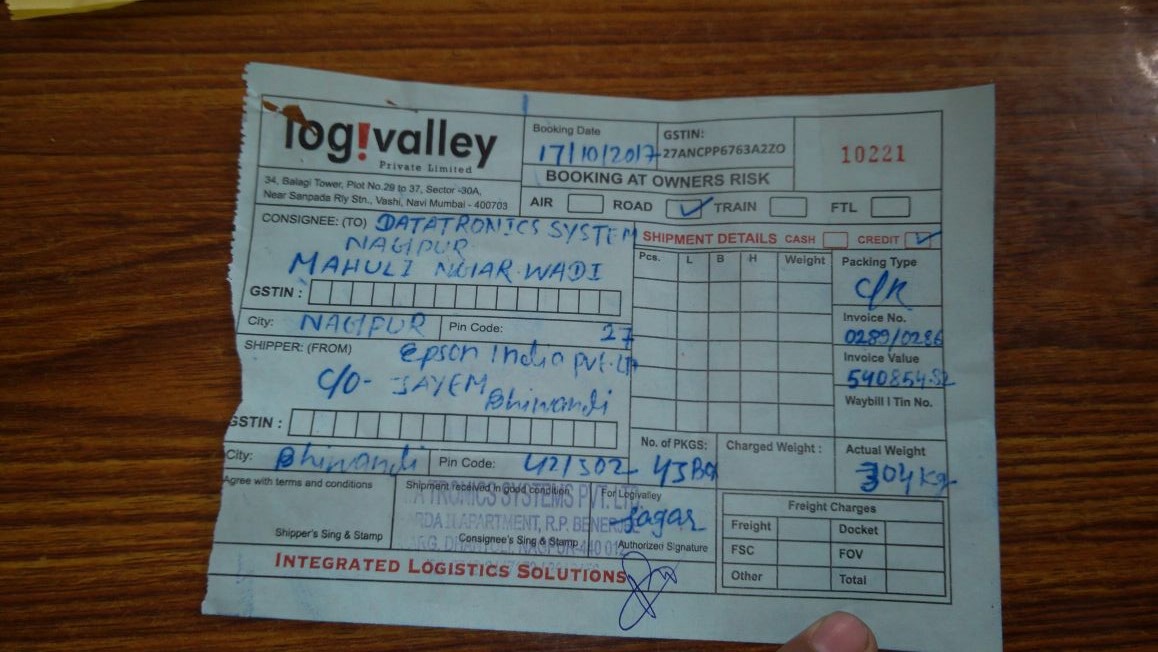 log!valley
Private Limited
34, Balagi Tower, Plot No.29 to 37, Sector -30A,
Near Sanpada Rly Stn., Vashi, Navi Mumbai - 400703
Booking Date
17/10/2017
GSTIN:
27ANCPP6763A2ZO
10221
BOOKING AT OWNERS RISK
AIR ROAD ✓ TRAIN FTL
CONSIGNEE: (TO) DATATRONICS SYSTEM
NAGPUR
MAHULI NGAR WADI
GSTIN :
City: NAGPUR Pin Code: 27
SHIPPER: (FROM) Epson India Pvt. Ltd
C/O- JAYEM
Bhiwandi
GSTIN :
City: Bhiwandi Pin Code: 421302
SHIPMENT DETAILS CASH CREDIT ✓
Pcs. L B H Weight
Packing Type
Invoice No.
0289/0286
Invoice Value
540854.52
Waybill I Tin No.
No. of PKGS: 43
Charged Weight :
Actual Weight
304 Kg
Agree with terms and conditions
Shipper's Sing & Stamp
Shipment received in good condition
TRONICS SYSTEMS PVT. LTD
APARTMENT, R.P. BENERJEE
NAGPUR-440 012
Consignee's Sing & Stamp
For Logivalley
Sagar
Authorized Signature
Freight Charges
Freight Docket
FSC FOV
Other Total
INTEGRATED LOGISTICS SOLUTIONS